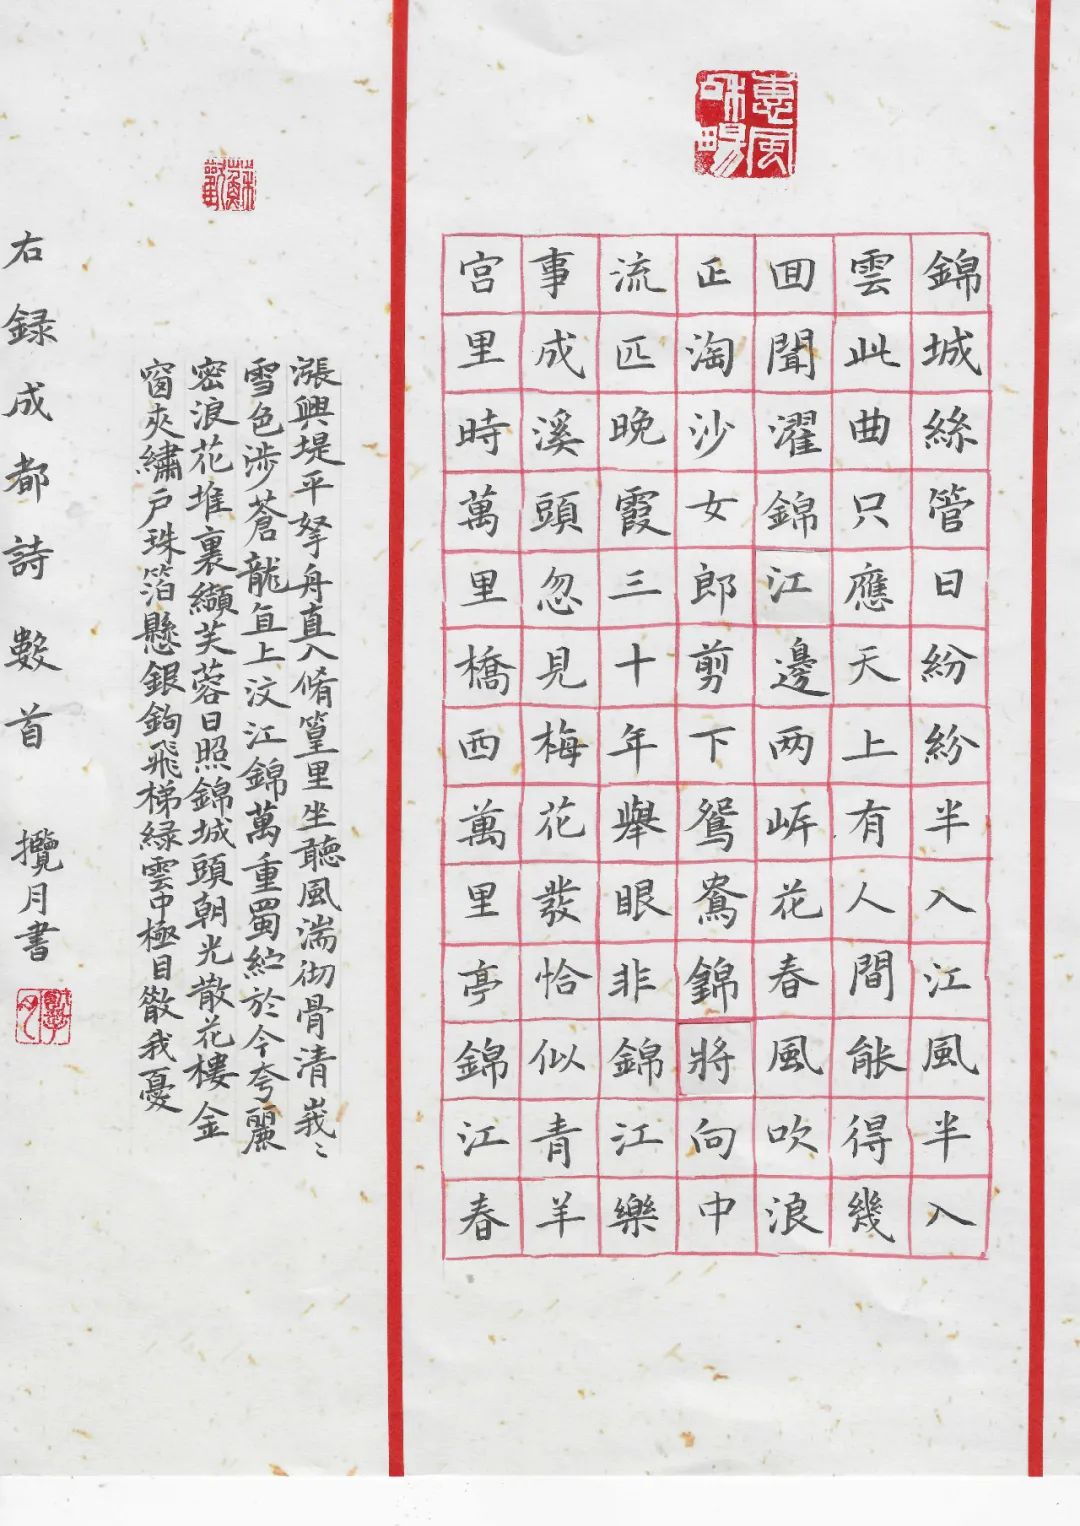 惠風和暢
錦城絲管日紛紛半入江風半入
雲此曲只應天上有人間能得幾
囬聞濯錦江邊两岍花春風吹浪
正淘沙女郎剪下鴛鴦錦將向中
流匹晚霞三十年舉眼非錦江樂
事成溪頭忽見梅花發恰似青羊
宮里時萬里橋西萬里亭錦江春
漲興堤平拏舟直入脩篁里坐聽風湍彻骨清峩〻
雪色涉蒼龍直上汶江錦萬重蜀紵於今夸麗
密浪花堆裏纈芙蓉日照錦城頭朝光散花樓金
窗夾繡戶珠箔懸銀鉤飛梯緑雲中極目散我憂
右録成都詩數首 攬月書